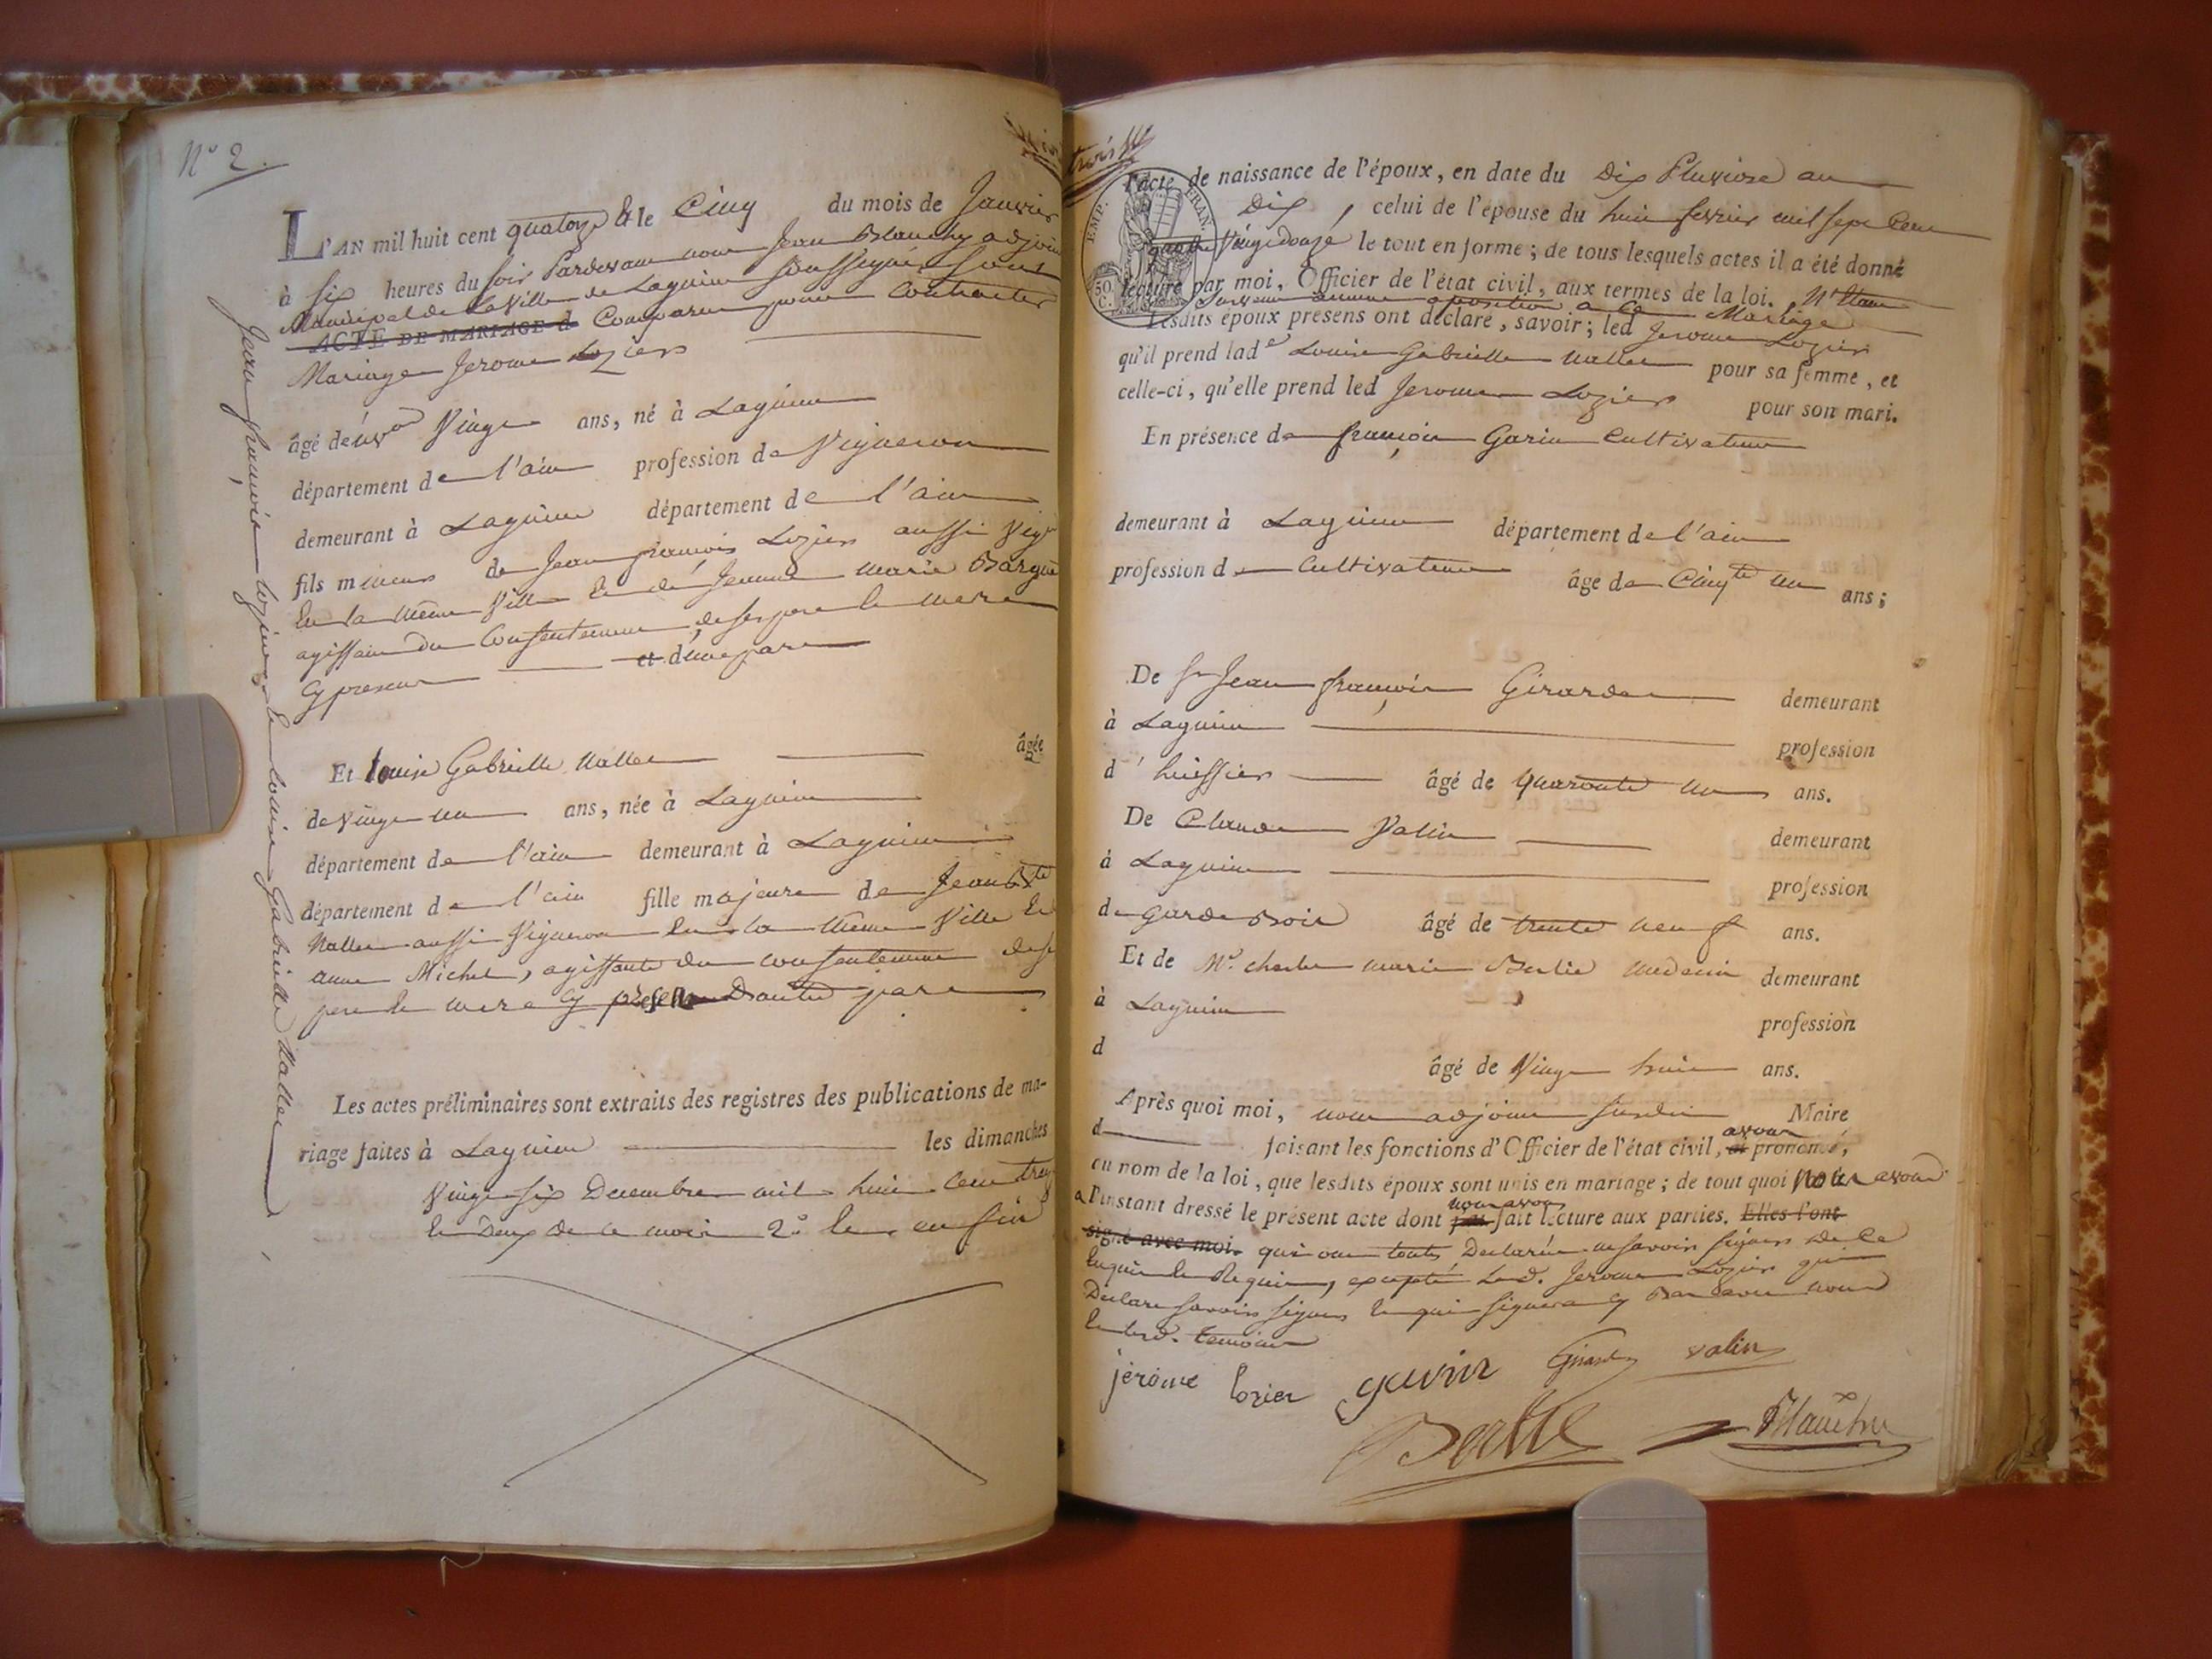 N° 2.
L'AN mil huit cent quatorze & le Cinq du mois de Janvier
à six heures du soir Pardevant nous Jean Blanchy adjoint
Municipal de la Ville de Lagnieu Soussigné, sont
ACTE DE MARIAGE d Comparus pour Contracter
Mariage Jerome Lozier
âgé de Vingt ans, né à Lagnieu
département de l'ain profession de Vigneron
demeurant à Lagnieu département de l'ain
fils mineur de Jean françois Lozier aussi Vigⁿ
En la même Ville Et de Jeanne Marie
agissant du Consentement de ses pere & mere
Cy presens et d'une part
Et Louise Gabrielle Nallet âgée
de Vingt un ans, née à Lagnieu
département de l'ain demeurant à Lagnieu
département de l'ain fille majeure de Jean Bte
Nallet aussi Vigneron En la même Ville Et
anne Michel, agissante du consentement de se
pere & mere cy présens D'autre part
Les actes préliminaires sont extraits des registres des publications de ma-
riage faites à Lagnieu les dimanches
Vingt six Decembre mil huit Cent treize
Et Deux de ce mois 2° Et en fin
Jean françois Lozier & Louise Gabrielle Nallet
trois
EMP. FRAN.
50 C.
l'acte de naissance de l'époux, en date du Dix Pluviose an
Dix, celui de l'épouse du huit fevrier mil sept Cent
quatre Vingt douze le tout en forme; de tous lesquels actes il a été donné
lecture par moi, Officier de l'état civil, aux termes de la loi. N'étant
Survenu aucune oposition a Ce Mariage
Lesdits époux présens ont déclaré, savoir; led Jerome Lozier
qu'il prend lad e Louise Gabrielle Nallet pour sa femme, et
celle-ci, qu'elle prend led Jerome Lozier pour son mari.
En présence de françois Garin Cultivateur
demeurant à Lagnieu département de l'ain
profession de Cultivateur âge de Cinqte un ans;
De Sr Jean françois Girardet demeurant
à Lagnieu profession
d'huissier âgé de quarante un ans.
De Claude Valin demeurant
à Lagnieu profession
de Garde Bois âgé de trente neuf ans.
Et de Mr. charles marie Berlie medecin demeurant
à Lagnieu profession
d âgé de Vingt huit ans.
Après quoi moi, nous adjoint susdit Maire
d faisant les fonctions d'Officier de l'état civil, ai avons prononcé,
au nom de la loi, que lesdits époux sont unis en mariage; de tout quoi Nous avons
a l'instant dressé le présent acte dont j'ai nous avons fait lecture aux parties. Elles l'ont
signé avec moi. qui ont toutes Declarées ne savoir signer de Ce
Enquis & Requis, excepté Led. Jerome Lozier qui
Declare savoir signer & qui signera Cy Bas avec nous
Et lesd. temoins
jérome lozier garin Girardet valin
Berlie Blanchy